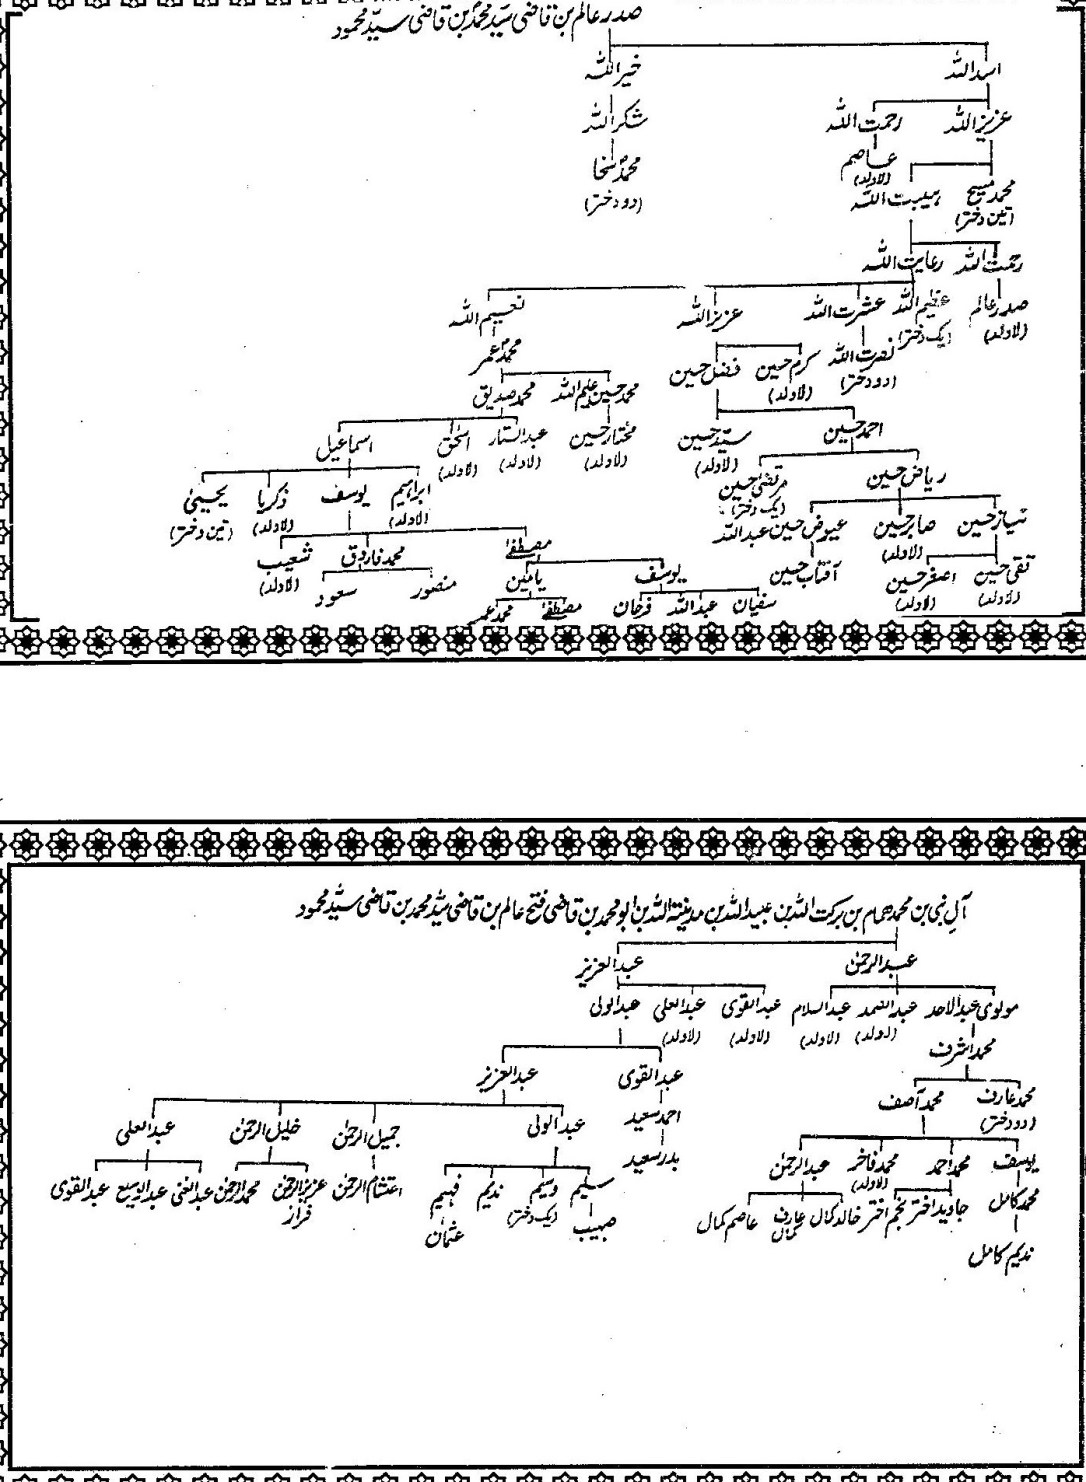 صدر عالم بن قاضی سیّد محمد بن قاضی سیّد محمود
اسد اللہ خیر اللہ
عزیز اللہ رحمت اللہ شکر اللہ
عاصم (لاولد) محمد سخا (دو دختر)
محمد مسیح (تین دختر) ہیبت اللہ
رحمت اللہ رعایت اللہ
صدر عالم (لاولد) عظیم اللہ (یک دختر) عشرت اللہ عزیز اللہ نعیم اللہ
نصرت اللہ (دو دختر) کرم حسین (لاولد) فضل حسین محمد عمر
محمد حسین علیم اللہ محمد صدیق
احمد حسین سیّد حسین (لاولد) مختار حسین (لاولد) عبدالستار (لاولد) اسحٰق (لاولد) اسماعیل
ریاض حسین مرتضیٰ حسین (یک دختر) ابراہیم (لاولد) یوسف زکریا (لاولد) یحییٰ (تین دختر)
نیاز حسین صابر حسین (لاولد) عیوض حسین عبد اللہ مصطفےٰ محمد فاروق شعیب (لاولد)
تقی حسین (لاولد) اصغر حسین (لاولد) آفتاب حسین یوسف یامین منصور سعود
سفیان عبد اللہ فرحان مصطفےٰ محمد عمر
آل نبی بن محمد ہمام بن برکت اللہ بن عبید اللہ بن مدینۃ اللہ بن ابو محمد بن قاضی فتح عالم بن قاضی سیّد محمد بن قاضی سیّد محمود
عبد الرحمٰن عبد العزیز
مولوی عبد الاحد عبد الصمد (لاولد) عبد السلام (لاولد) عبد القوی (لاولد) عبد العلی (لاولد) عبد الولی
محمد اشرف عبد القوی عبد العزیز
محمد عارف (دو دختر) محمد آصف احمد سعید عبد الولی جمیل الرحمٰن خلیل الرحمٰن عبد العلی
یوسف محمد احمد محمد فاخر (لاولد) عبد الرحمٰن بدر سعید سلیم وسیم (یک دختر) ندیم فہیم احتشام الرحمٰن عزیز الرحمٰن فراز محمد الرحمٰن عبد الغنی عبد الوسیع عبد القوی
محمد کامل جاوید اختر نجم اختر خالد کمال عارف کمال عاصم کمال صہیب عثمان
ندیم کامل